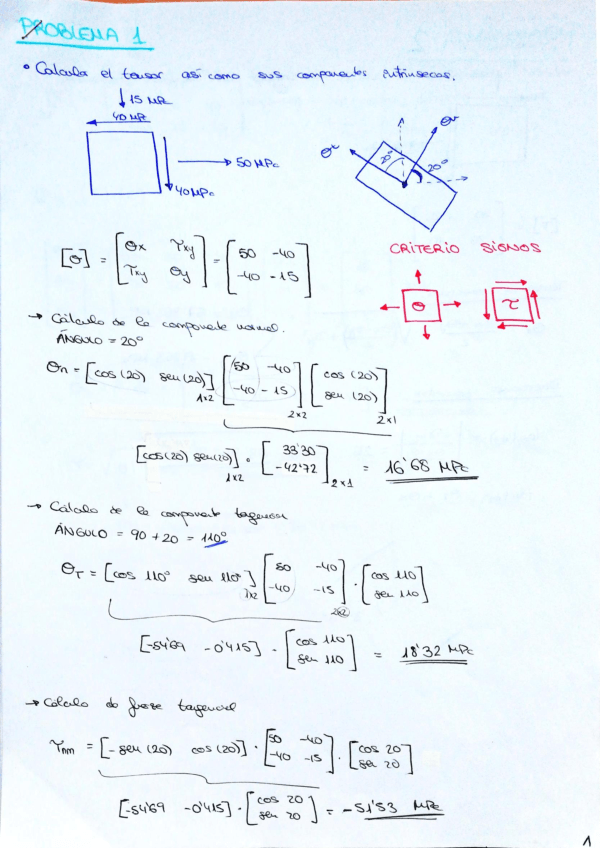 PROBLEMA 1
• Calcula el tensor así como sus componentes intrínsecas.
↓ 15 MPa
40 MPa
50 MPa
40 MPa
σ
σ
20°
20°
[σ] = [σx τxy; τxy σy] = [50 -40; -40 -15]
CRITERIO SIGNOS
σ
τ
→ Cálculo de la componente normal.
ÁNGULO = 20°
σn = [cos(20) sen(20)]1x2 [50 -40; -40 -15]2x2 [cos(20); sen(20)]2x1
[cos(20) sen(20)]1x2 · [33'30; -42'72]2x1 = 16'68 MPa
→ Cálculo de la componente tangencial
ÁNGULO = 90 + 20 = 110°
σT = [cos 110° sen 110°]1x2 [50 -40; -40 -15]2x2 · [cos 110; sen 110]
[-54'69 -0'415] · [cos 110; sen 110] = 18'32 MPa
→ Cálculo de fuerza tangencial
τnm = [-sen(20) cos(20)] · [50 -40; -40 -15] · [cos 20; sen 20]
[-54'69 -0'415] · [cos 20; sen 20] = -51'53 MPa
1